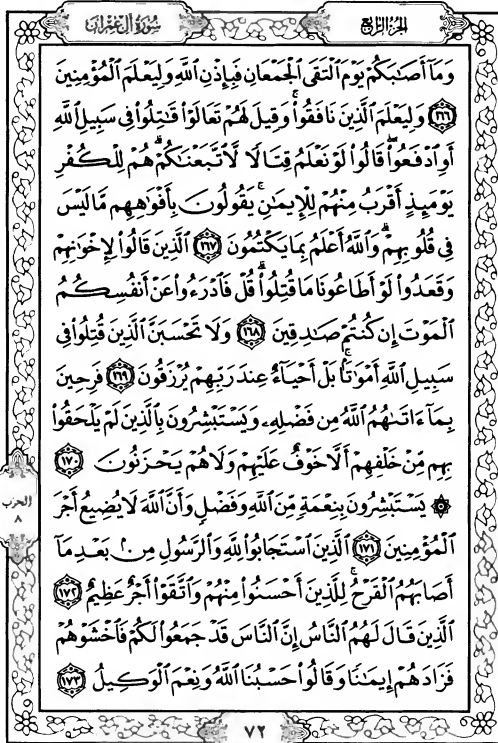 الجزء الرابع
سورة آل عمران
وَمَآ أَصَٰبَكُمْ يَوْمَ ٱلْتَقَى ٱلْجَمْعَانِ فَبِإِذْنِ ٱللَّهِ وَلِيَعْلَمَ ٱلْمُؤْمِنِينَ
١٦٦ وَلِيَعْلَمَ ٱلَّذِينَ نَافَقُوا۟ۚ وَقِيلَ لَهُمْ تَعَالَوْا۟ قَٰتِلُوا۟ فِى سَبِيلِ ٱللَّهِ
أَوِ ٱدْفَعُوا۟ۖ قَالُوا۟ لَوْ نَعْلَمُ قِتَالًا لَّٱتَّبَعْنَٰكُمْۗ هُمْ لِلْكُفْرِ
يَوْمَئِذٍ أَقْرَبُ مِنْهُمْ لِلْإِيمَٰنِۚ يَقُولُونَ بِأَفْوَٰهِهِم مَّا لَيْسَ
فِى قُلُوبِهِمْۗ وَٱللَّهُ أَعْلَمُ بِمَا يَكْتُمُونَ ١٦٧ ٱلَّذِينَ قَالُوا۟ لِإِخْوَٰنِهِمْ
وَقَعَدُوا۟ لَوْ أَطَاعُونَا مَا قُتِلُوا۟ۗ قُلْ فَٱدْرَءُوا۟ عَنْ أَنفُسِكُمُ
ٱلْمَوْتَ إِن كُنتُمْ صَٰدِقِينَ ١٦٨ وَلَا تَحْسَبَنَّ ٱلَّذِينَ قُتِلُوا۟ فِى
سَبِيلِ ٱللَّهِ أَمْوَٰتًۢاۚ بَلْ أَحْيَآءٌ عِندَ رَبِّهِمْ يُرْزَقُونَ ١٦٩ فَرِحِينَ
بِمَآ ءَاتَىٰهُمُ ٱللَّهُ مِن فَضْلِهِۦ وَيَسْتَبْشِرُونَ بِٱلَّذِينَ لَمْ يَلْحَقُوا۟
بِهِم مِّنْ خَلْفِهِمْ أَلَّا خَوْفٌ عَلَيْهِمْ وَلَا هُمْ يَحْزَنُونَ ١٧٠
۞ يَسْتَبْشِرُونَ بِنِعْمَةٍ مِّنَ ٱللَّهِ وَفَضْلٍ وَأَنَّ ٱللَّهَ لَا يُضِيعُ أَجْرَ
ٱلْمُؤْمِنِينَ ١٧١ ٱلَّذِينَ ٱسْتَجَابُوا۟ لِلَّهِ وَٱلرَّسُولِ مِنۢ بَعْدِ مَآ
أَصَابَهُمُ ٱلْقَرْحُۚ لِلَّذِينَ أَحْسَنُوا۟ مِنْهُمْ وَٱتَّقَوْا۟ أَجْرٌ عَظِيمٌ ١٧٢
ٱلَّذِينَ قَالَ لَهُمُ ٱلنَّاسُ إِنَّ ٱلنَّاسَ قَدْ جَمَعُوا۟ لَكُمْ فَٱخْشَوْهُمْ
فَزَادَهُمْ إِيمَٰنًا وَقَالُوا۟ حَسْبُنَا ٱللَّهُ وَنِعْمَ ٱلْوَكِيلُ ١٧٣
الحزب
٨
٧٢